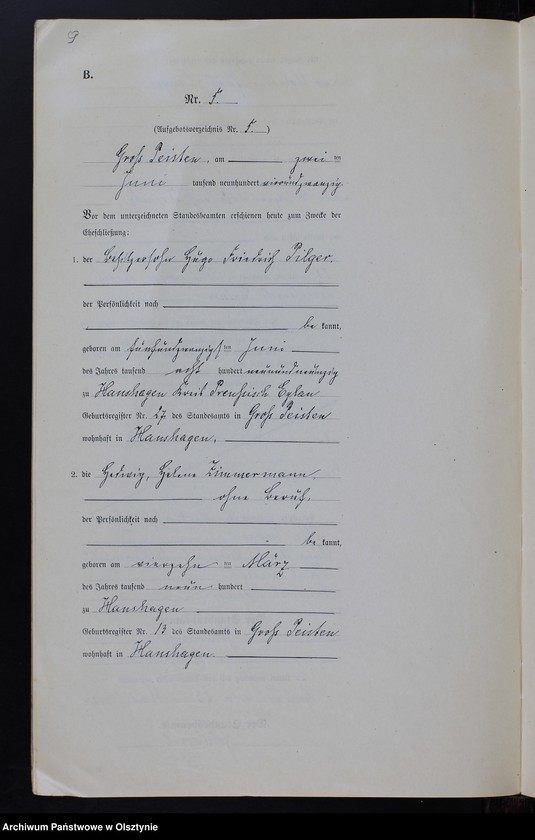 9
B.
Nr. 5.
(Aufgebotsverzeichnis Nr. 5.)
Groß Peisten, am zwei ten
Juni tausend neunhundert vierundzwanzig.
Vor dem unterzeichneten Standesbeamten erschienen heute zum Zwecke der
Eheschließung:
1. der Besitzersohn Hugo Friedrich Pilger.
der Persönlichkeit nach
be kannt,
geboren am fünfundzwanzigs ten Juni
des Jahres tausend acht hundert neunundneunzig
zu Hanshagen Kreis Preußisch Eylau
Geburtsregister Nr. 27 des Standesamts in Groß Peisten
wohnhaft in Hanshagen.
2. die Hedwig, Helene Zimmermann,
ohne Beruf,
der Persönlichkeit nach
be kannt,
geboren am vierzehn ten März
des Jahres tausend neun hundert
zu Hanshagen
Geburtsregister Nr. 13 des Standesamts in Groß Peisten
wohnhaft in Hanshagen.
Archiwum Państwowe w Olsztynie